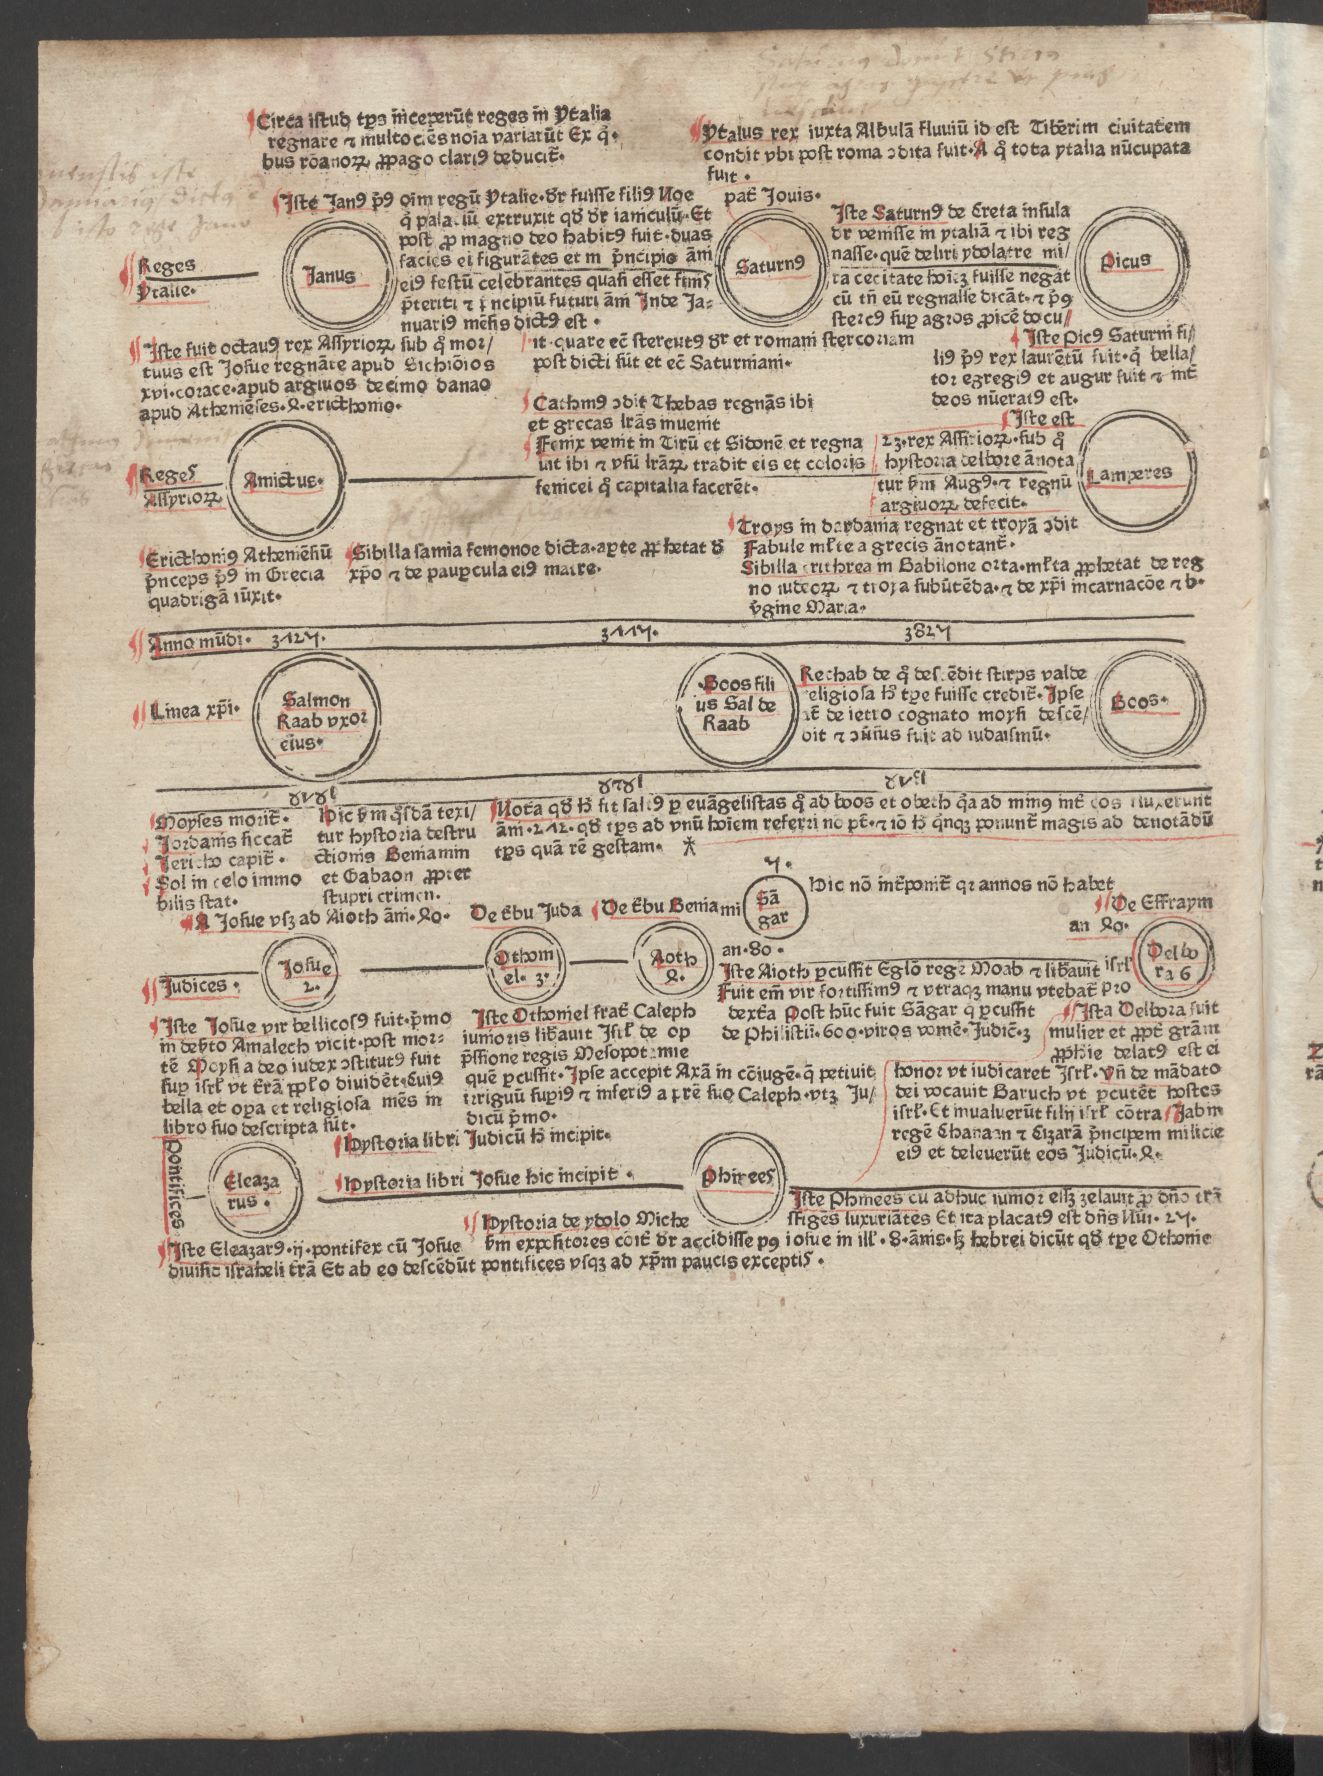 Circa istud tp̄s inceperūt reges in Ytalia
regnare ⁊ multociēs noīa variarūt Ex q̊
bus rōanoꝝ ꝓpago clariꝰ deducit̄.
Ytalus rex iuxta Albulā fluuiū id est Tiberim ciuitatem
condit vbi post roma ↄdita fuit. A q̊ tota ytalia nūcupata
fuit.
Iste Janꝰ p̄ꝰ oim regū Ytalie. dr̄ fuisse filiꝰ Noe
q̊ palaciū extruxit qd̄ dr̄ ianiculū. Et
post ꝓ magno deo habitꝰ fuit. duas
facies ei figurātes et in p̄ncipio āni
eiꝰ festū celebrantes quasi esset finis
p̄teriti ⁊ p̄ncipiū futuri āni Inde Ja-
nuariꝰ mēsis dictꝰ est.
Reges
Ytalie.
Janus
pat̄ Jouis.
Saturnꝰ
Iste Saturnꝰ de Creta insula
dr̄ venisse in ytaliā ⁊ ibi reg
nasse. quē deliri ydolatre mi/
ra cecitate hoīeꝫ fuisse negāt
cū tn̄ eū regnasse dicāt. ⁊ p̄ꝰ
stercꝰ suꝑ agros ꝓicē docu/
it. quare eē stercutꝰ dr̄ et romani stercoriam
post dicti sūt et eē Saturniani.
Picus
Iste Picꝰ Saturni fi/
liꝰ p̄ꝰ rex laurētū fuit. q̊ bella/
tor egregiꝰ et augur fuit ⁊ int̄
deos nūeratꝰ est.
Iste fuit octauꝰ rex Assyrioꝝ sub q̊ mor/
tuus est Josue regnāte apud Sichiōios
xvi. corace. apud argiuos decimo danao
apud Atheniēses. 4. ericthonio.
Cathmꝰ ↄdit Thebas regnās ibi
et grecas lr̄as inuenit
Fenix venit in Tirū et Sidonē et regna
uit ibi ⁊ vsū lr̄aꝝ tradit eis et coloris
fenicei q̊ capitalia facerēt.
Reges
Assyrioꝝ
Amictus.
Iste est
23. rex Assirioꝝ. sub q̊
hystoria delbore ānota
tur sm̄ Augꝰ. ⁊ regnū
argiuoꝝ defecit.
Lamperes
Ericthoniꝰ Atheniēsiū
p̄nceps p̄ꝰ in Grecia
quadrigā iūxit.
Sibilla samia femonoe dicta. aꝑte ꝓphetat d̄
xp̄o ⁊ de pauꝑcula eiꝰ matre.
Troys in dardania regnat et troyā ↄdit
Fabule ml̄te a grecis ānotant̄.
Sibilla erithrea in Babilone orta. ml̄ta ꝓphetat de reg
no iudeoꝝ ⁊ troya subutēda. ⁊ de xp̄i incarnacōe ⁊ b.
v̄gine Maria.
Anno mūdi. 3127. 3117. 3827
Linea xp̄i.
Salmon
Raab vxor
eius.
Boos fili
us Sal de
Raab
Rechab de q̊ descēdit stirps valde
religiosa h̄ tꝑe fuisse credit̄. Ipse
it̄ de ietro cognato moysi descē/
dit ⁊ ↄūsus fuit ad iudaismū.
Boos.
Moyses morit̄.
Jordanis siccat̄
Jericho capit̄.
Sol in celo immo
bilis stat.
Hic sm̄ q̊sdā texi/
tur hystoria destru
ctionis Beniamin
et Gabaon ꝓpter
stupri crimen.
Nota qd̄ h̄ fit saltꝰ ꝑ euāgelistas q̊ ad boos et obeth q̄a ad minꝰ int̄ eos fluxerunt
āni. 212. qd̄ tp̄s ad vnū hoīem referri nō pt̄. ⁊ iō h̄ q̄nqꝫ ponunt̄ magis ad denotādū
tp̄s quā rē gestam.
A Josue vsꝫ ad Aioth āni. 40.
De t̄bu Juda
De t̄bu Beniami
7.
Sā
gar
Hic nō int̄ponit̄ qꝛ annos nō habet
De Effraym
an 40.
Judices.
Josue
2.
Othoni
el. 3.
Aoth
4.
an. 80.
Delbo
ra 6
Iste Aioth ꝑcussit Eglō regē Moab ⁊ libauit isrl̄
Fuit em̄ vir fortissimꝰ ⁊ vtraqꝫ manu vtebat̄ pro
dext̄a Post hūc fuit Sāgar q̊ ꝑcussit
de Philistiī. 600. viros vomē. Judic̄. 3
Iste Josue vir bellicosꝰ fuit. p̄mo
in deb̄to Amalech vicit. post mor-
tē Moysi a deo iudex ↄstitutꝰ fuit
suꝑ isrl̄ vt t̄rā ꝓplo diuidēt. Cuiꝰ
bella et oꝑa et religiosa mēs in
libro suo descripta sūt.
Iste Othoniel frat̄ Caleph
iunioris lib̄auit Isrl̄ de op
p̄ssione regis Mesopotamie
quē ꝑcussit. Ipse accepit Axā in cōiugē. q̄ petiuit
irriguū suꝑiꝰ ⁊ inferiꝰ a p̄re suo Caleph. vtꝫ Ju/
dicū p̄mo.
Ista Delbora fuit
mulier et ꝓpt̄ grām
ꝓphīe delatꝰ est ei
honor vt iudicaret Isrl̄. Vn̄ de mādato
dei vocauit Baruch vt ꝑcutēt hostes
isrl̄. Et inualuerūt filij isrl̄ cōtra Jabin
regē Chanaan ⁊ Cizarā p̄ncipem milicie
eiꝰ et deleuerūt eos Judicū. 4.
Hystoria libri Judicū h̄ incipit.
Pontifices
Eleaza
rus.
Hystoria libri Josue hic incipit.
Phinees
Iste Phinees cū adhuc iunior eēꝫ zelauit ꝓ dn̄o trā
sfigēs luxuriātes Et ita placatꝰ est dn̄s Nūi. 27.
Hystoria de ydolo Miche
sm̄ expositores cōit̄ dr̄ accidisse pꝰ iosue in ill̄. 8. ānis. sꝫ hebrei dicūt qd̄ tꝑe Othonie
Iste Eleazarꝰ. ij. pontifex cū Josue
diuisit israheli t̄rā Et ab eo descēdūt pontifices vsqꝫ ad xp̄m paucis exceptis.